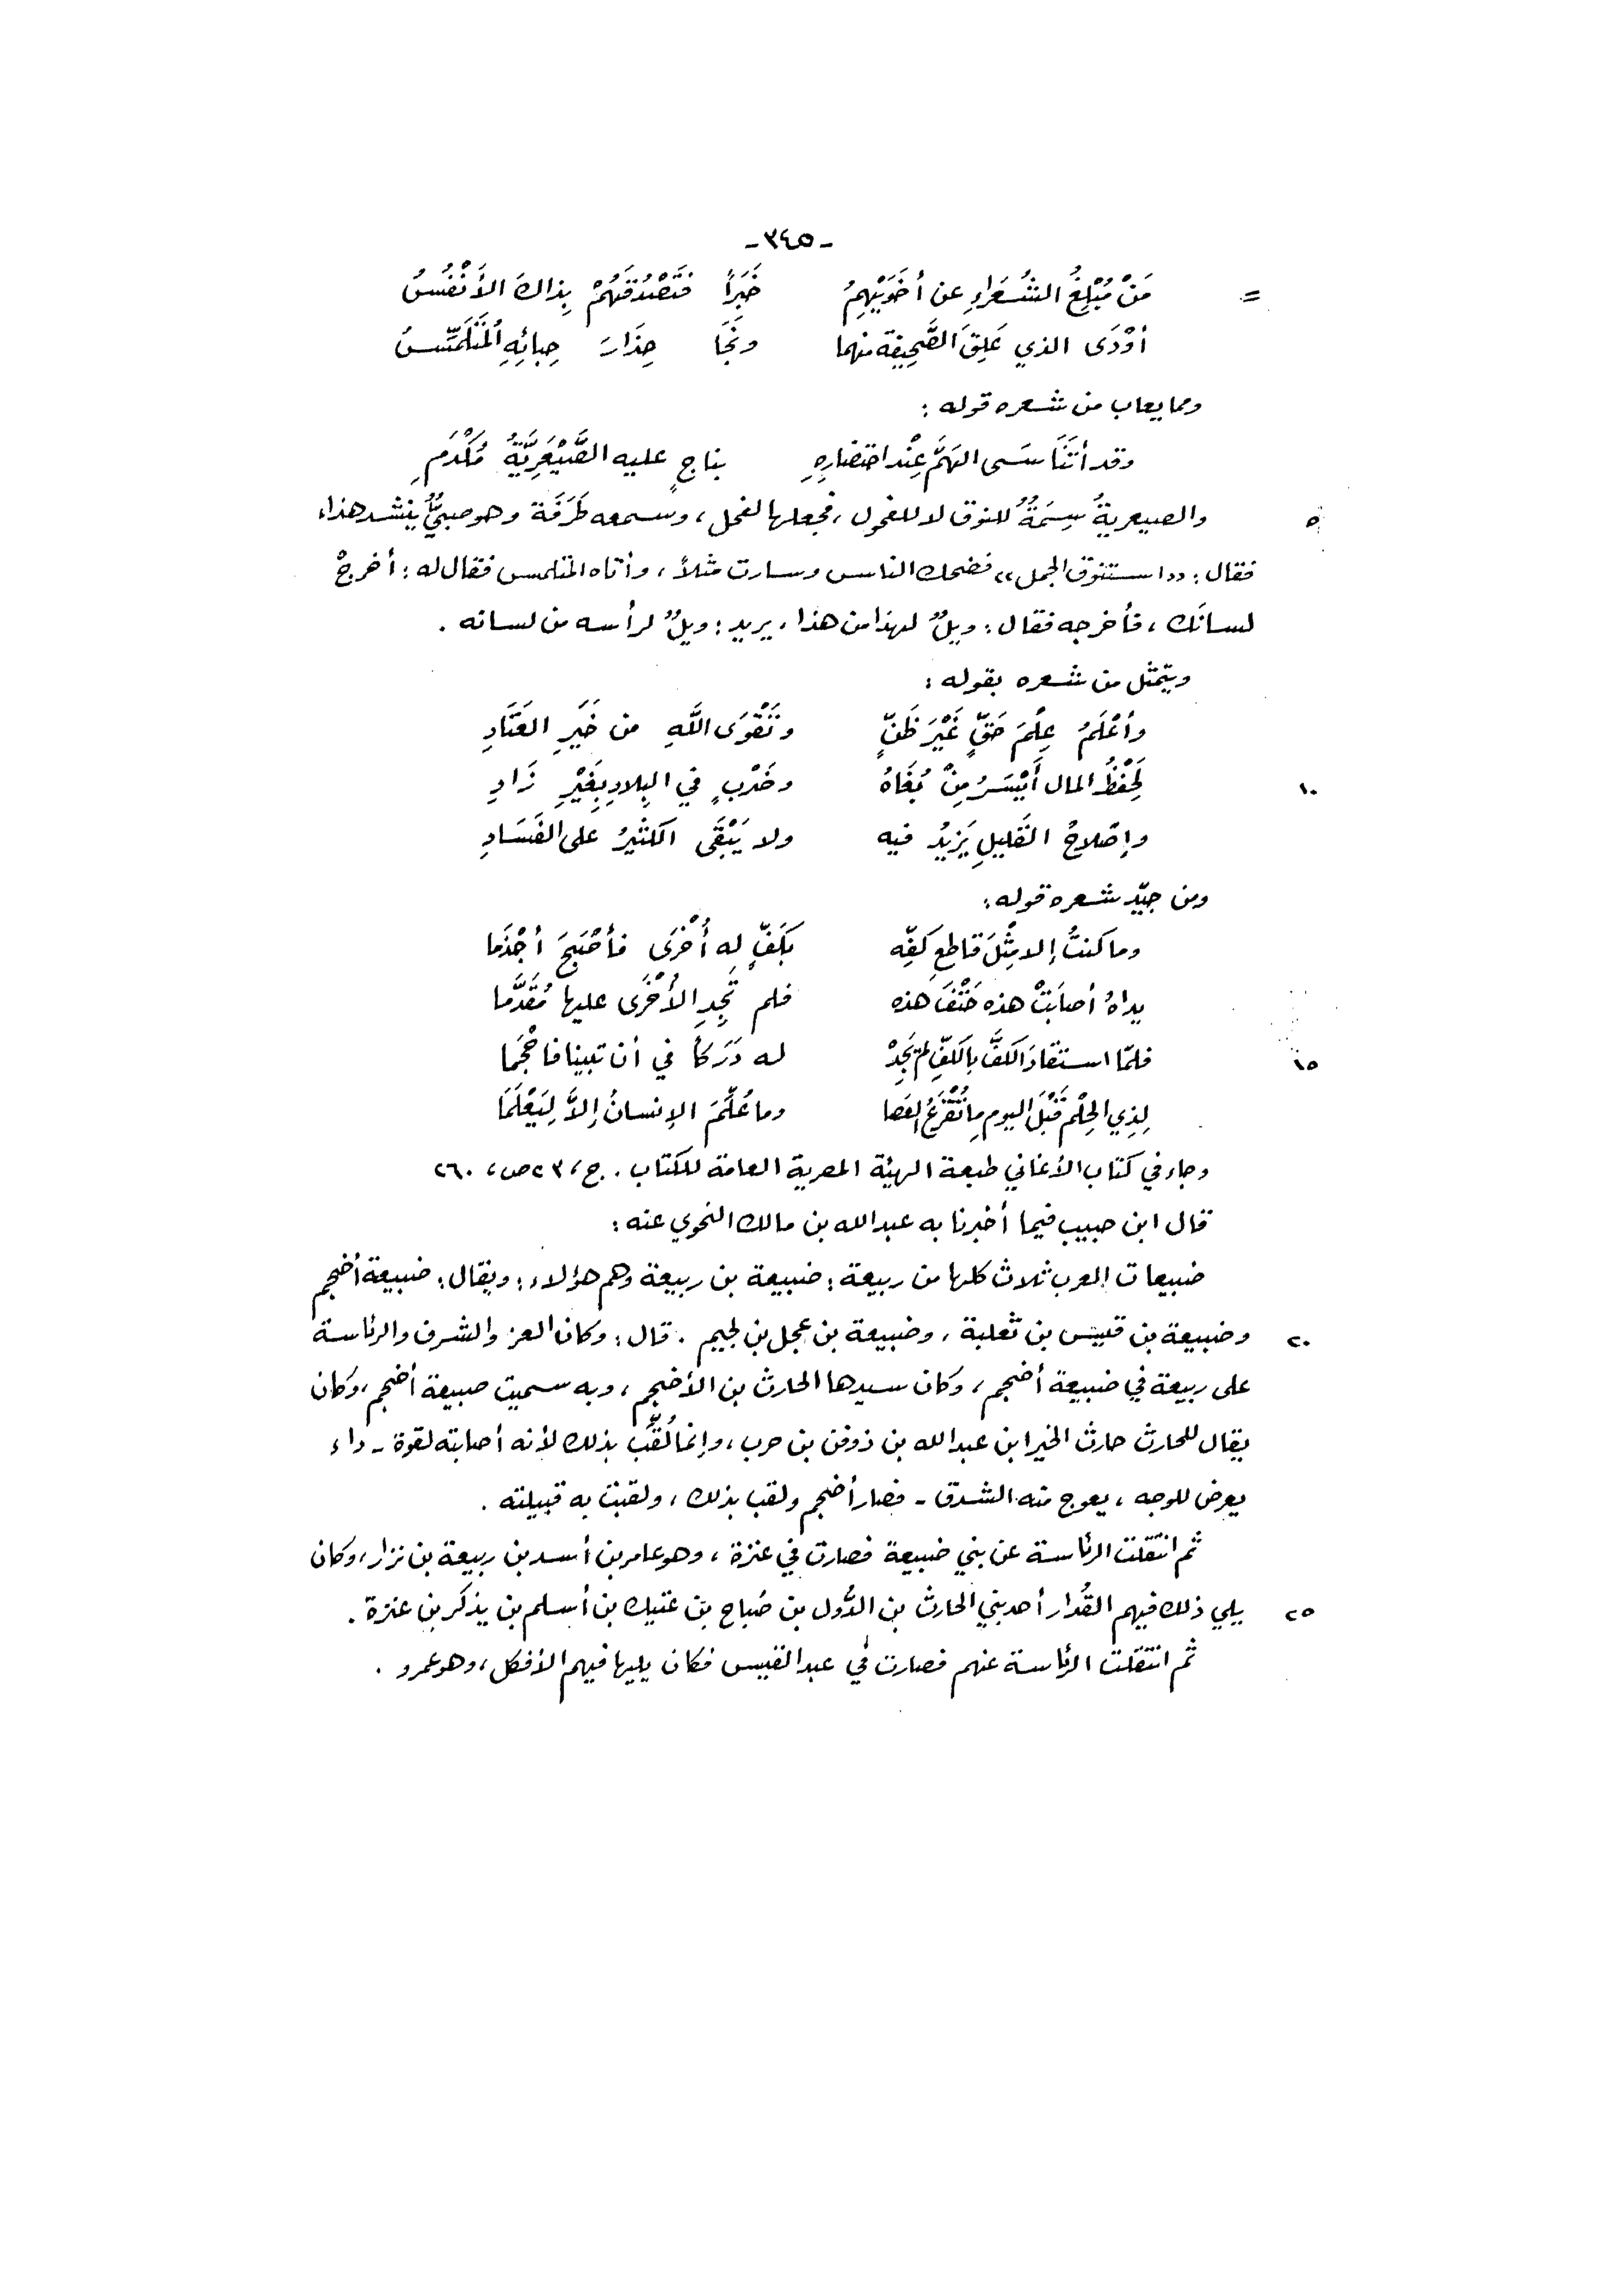 -٣٤٥-
= مَنْ مُبْلِغُ الشُّعَراءِ عن أخَوَيْهِمُ خَبَراً فتَصْدُقَهُمْ بِذاكَ الأَنْفُسُ
أوْدَى الذي عَلِقَ الصَّحِيفةَ منهما ونَجَا حِذَارَ حِبائِهِ المُتَلَمِّسُ
ومما يعاب من شعره قوله :
وقد أتَنَاسَى الهَمَّ عِنْد احتضارِهِ بناجٍ عليه الصَّيْعَرِيَّةُ مُكْدَمِ
٥ والصيعريةُ سِمَةٌ للنوق لا للفحول، فجعلها لفحل، وسمعه طَرَفَة وهو صبيٌّ ينشد هذا،
فقال : «استنوق الجمل» فضحك الناس وسارت مثلاً، وأتاه المتلمس فقال له : أخرجْ
لسانَك، فأخرجه فقال : ويلٌ لهذا من هذا، يريد : ويلٌ لرأسه من لسانه .
ويتمثل من شعره بقوله :
وأعْلَمُ عِلْمَ حَقٍّ غَيْرَ ظَنٍّ وتَقْوَى اللَّهِ من خَيْرِ العَتَادِ
١٠ لَحِفْظُ المال أَيْسَرُ مِنْ بُغَاهُ وضَرْبٍ في البِلادِ بِغَيْرِ زَادِ
وإصْلاحُ القَليلِ يَزيدُ فيه ولا يَبْقَى الكثيرُ على الفَسَادِ
ومن جيّد شعره قوله :
وما كنتُ إلا مِثْلَ قاطعِ كَفِّه بكَفٍّ له أُخْرَى فأصْبَحَ أجْذَما
يداهُ أصابَتْ هذه حَتْفَ هذه فلم تَجِدِ الأُخْرَى عليها مُقَدَّما
١٥ فلمّا استقادَ الكفَّ بالكفِّ لم تَجِدْ له دَرَكاً في أن تبينا فأحْجَما
لِذِي الحِلْم قَبْلَ اليوم ما تُقْرَعُ العَصا وما عُلِّمَ الإنسانُ إلاَّ لِيَعْلَمَا
وجاء في كتاب الأغاني طبعة الهيئة المصرية العامة للكتاب . ج، ٢٣ ص، ٢٦٠
قال ابن حبيب فيما أخبرنا به عبد الله بن مالك النحوي عنه :
ضبيعات العرب ثلاث كلها من ربيعة : ضبيعة بن ربيعة وهم هؤلاء : ويقال : ضبيعة أضجم
٢٠ وضبيعة بن قيس بن ثعلبة، وضبيعة بن عجل بن لجيم . قال : وكان العز والشرف والرئاسة
على ربيعة في ضبيعة أضجم، وكان سيدها الحارث بن الأضجم، وبه سميت ضبيعة أضجم، وكان
يقال للحارث حارث الخير ابن عبد الله بن ذوفن بن حرب، وإنما لُقِّب بذلك لأنه أصابته لقوة - داء
يعرض للوجه، يعوج منه الشدق - فصار أضجم ولقب بذلك، ولقبت به قبيلته .
ثم انتقلت الرئاسة عن بني ضبيعة فصارت في عنزة، وهو عامر بن أسد بن ربيعة بن نزار، وكان
٢٥ يلي ذلك فيهم القُدار أحد بني الحارث بن الدُّول بن صُباح بن عتيك بن أسلم بن يذكر بن عنزة .
ثم انتقلت الرئاسة عنهم فصارت في عبد القيس فكان يليها فيهم الأفكل، وهو عمرو .